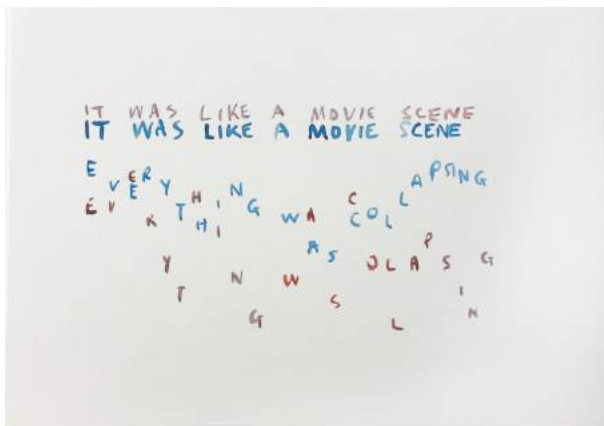 IT WAS LIKE A MOVIE SCENE
IT WAS LIKE A MOVIE SCENE
EVERYTHING WAS COLLAPSING
EVERYTHING WAS COLLAPSING